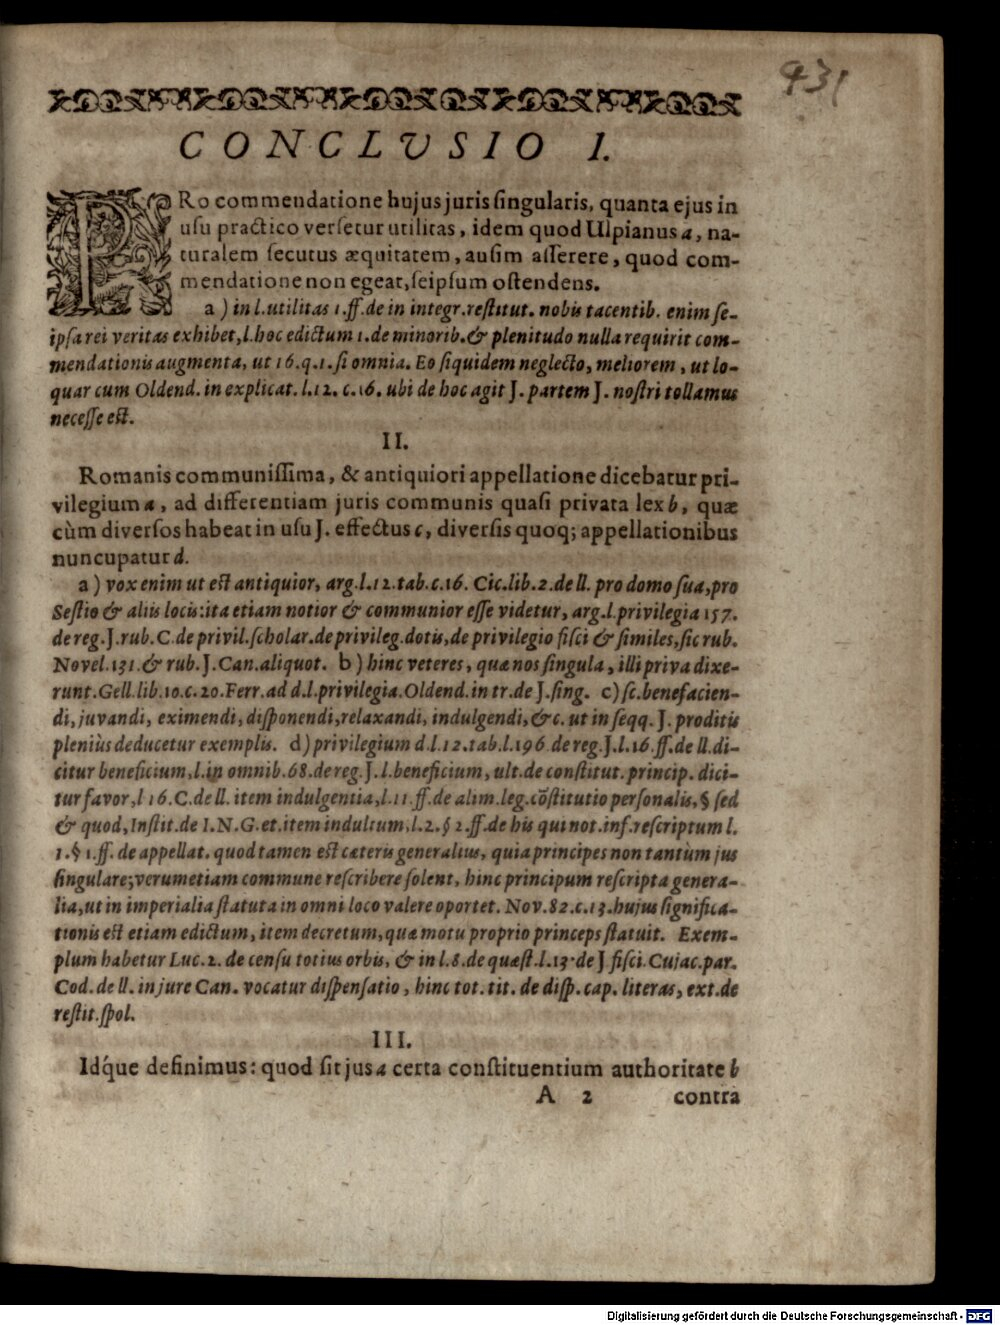 431
CONCLVSIO I.
PRo commendatione hujus juris singularis, quanta ejus in
usu practico versetur utilitas, idem quod Ulpianus a, na-
turalem secutus æquitatem, ausim asserere, quod com-
mendatione non egeat, seipsum ostendens.
a) in l. utilitas 1. ff. de in integr. restitut. nobis tacentib. enim se-
ipsa rei veritas exhibet, l. hoc edictum 1. de minorib. & plenitudo nulla requirit com-
mendationis augmenta, ut 16. q. 1. si omnia. Eo siquidem neglecto, meliorem, ut lo-
quar cum Oldend. in explicat. l. 12. c. 16. ubi de hoc agit J. partem J. nostri tollamus
necesse est.
II.
Romanis communissima, & antiquiori appellatione dicebatur pri-
vilegium a, ad differentiam juris communis quasi privata lex b, quæ
cùm diversos habeat in usu J. effectus c, diversis quoq; appellationibus
nuncupatur d.
a) vox enim ut est antiquior, arg. l. 12. tab. c. 16. Cic. lib. 2. de ll. pro domo sua, pro
Sestio & aliis locis: ita etiam notior & communior esse videtur, arg. l. privilegia 157.
de reg. J. rub. C. de privil. scholar. de privileg. dotis, de privilegio fisci & similes, sic rub.
Novel. 131. & rub. J. Can. aliquot. b) hinc veteres, quæ nos singula, illi priva dixe-
runt. Gell. lib. 10. c. 20. Ferr. ad d. l. privilegia. Oldend. in tr. de J. sing. c) sc. benefacien-
di, juvandi, eximendi, disponendi, relaxandi, indulgendi, &c. ut in seqq. J. proditis
pleniùs deducetur exemplis. d) privilegium d. l. 12. tab. l. 196. de reg. J. l. 16. ff. de ll. di-
citur beneficium, l. in omnib. 68. de reg. J. l. beneficium, ult. de constitut. princip. dici-
tur favor, l 16. C. de ll. item indulgentia, l. 11. ff. de alim. leg. cõstitutio personalis, § sed
& quod, Instit. de I. N. G. et. item indultum, l. 2. § 2. ff. de his qui not. inf. rescriptum l.
1. § 1. ff. de appellat. quod tamen est cæteris generalius, quia principes non tantùm jus
singulare; verumetiam commune rescribere solent, hinc principum rescripta genera-
lia, ut in imperialia statuta in omni loco valere oportet. Nov. 82. c. 13. hujus significa-
tionis est etiam edictum, item decretum, quæ motu proprio princeps statuit. Exem-
plum habetur Luc. 2. de censu totius orbis, & in l. 8. de quæst. l. 13. de J. fisci. Cujac. par.
Cod. de ll. in jure Can. vocatur dispensatio, hinc tot. tit. de disp. cap. literas, ext. de
restit. spol.
III.
Idq́ue definimus: quod sit jus a certa constituentium authoritate b
A 2 contra
Digitalisierung gefördert durch die Deutsche Forschungsgemeinschaft - DFG